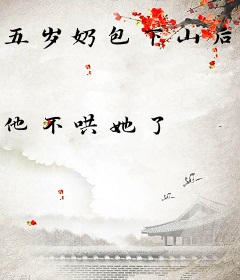 五岁奶包下山后
他不哄她了